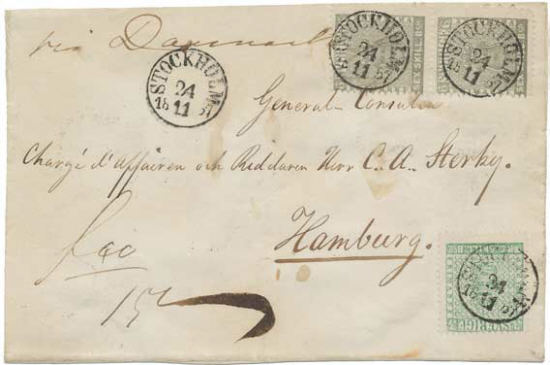 via Danmark
STOCKHOLM
24
11
18 57
STOCKHOLM
24
11
18 57
STOCKHOLM
24
11
18 57
General-Consuln
Chargé d'Affairen och Riddaren Herr C. A. Sterky.
Hamburg.
fco
15
24
11
SVERIGE